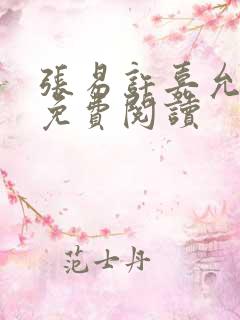 張易許嘉允
免費閱讀
范士丹